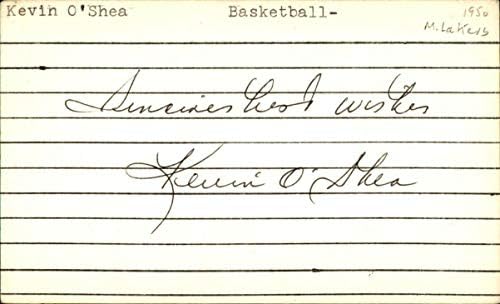 Kevin O'Shea Basketball- 1950
M. Lakers
Sincerest best wishes
Kevin O'Shea